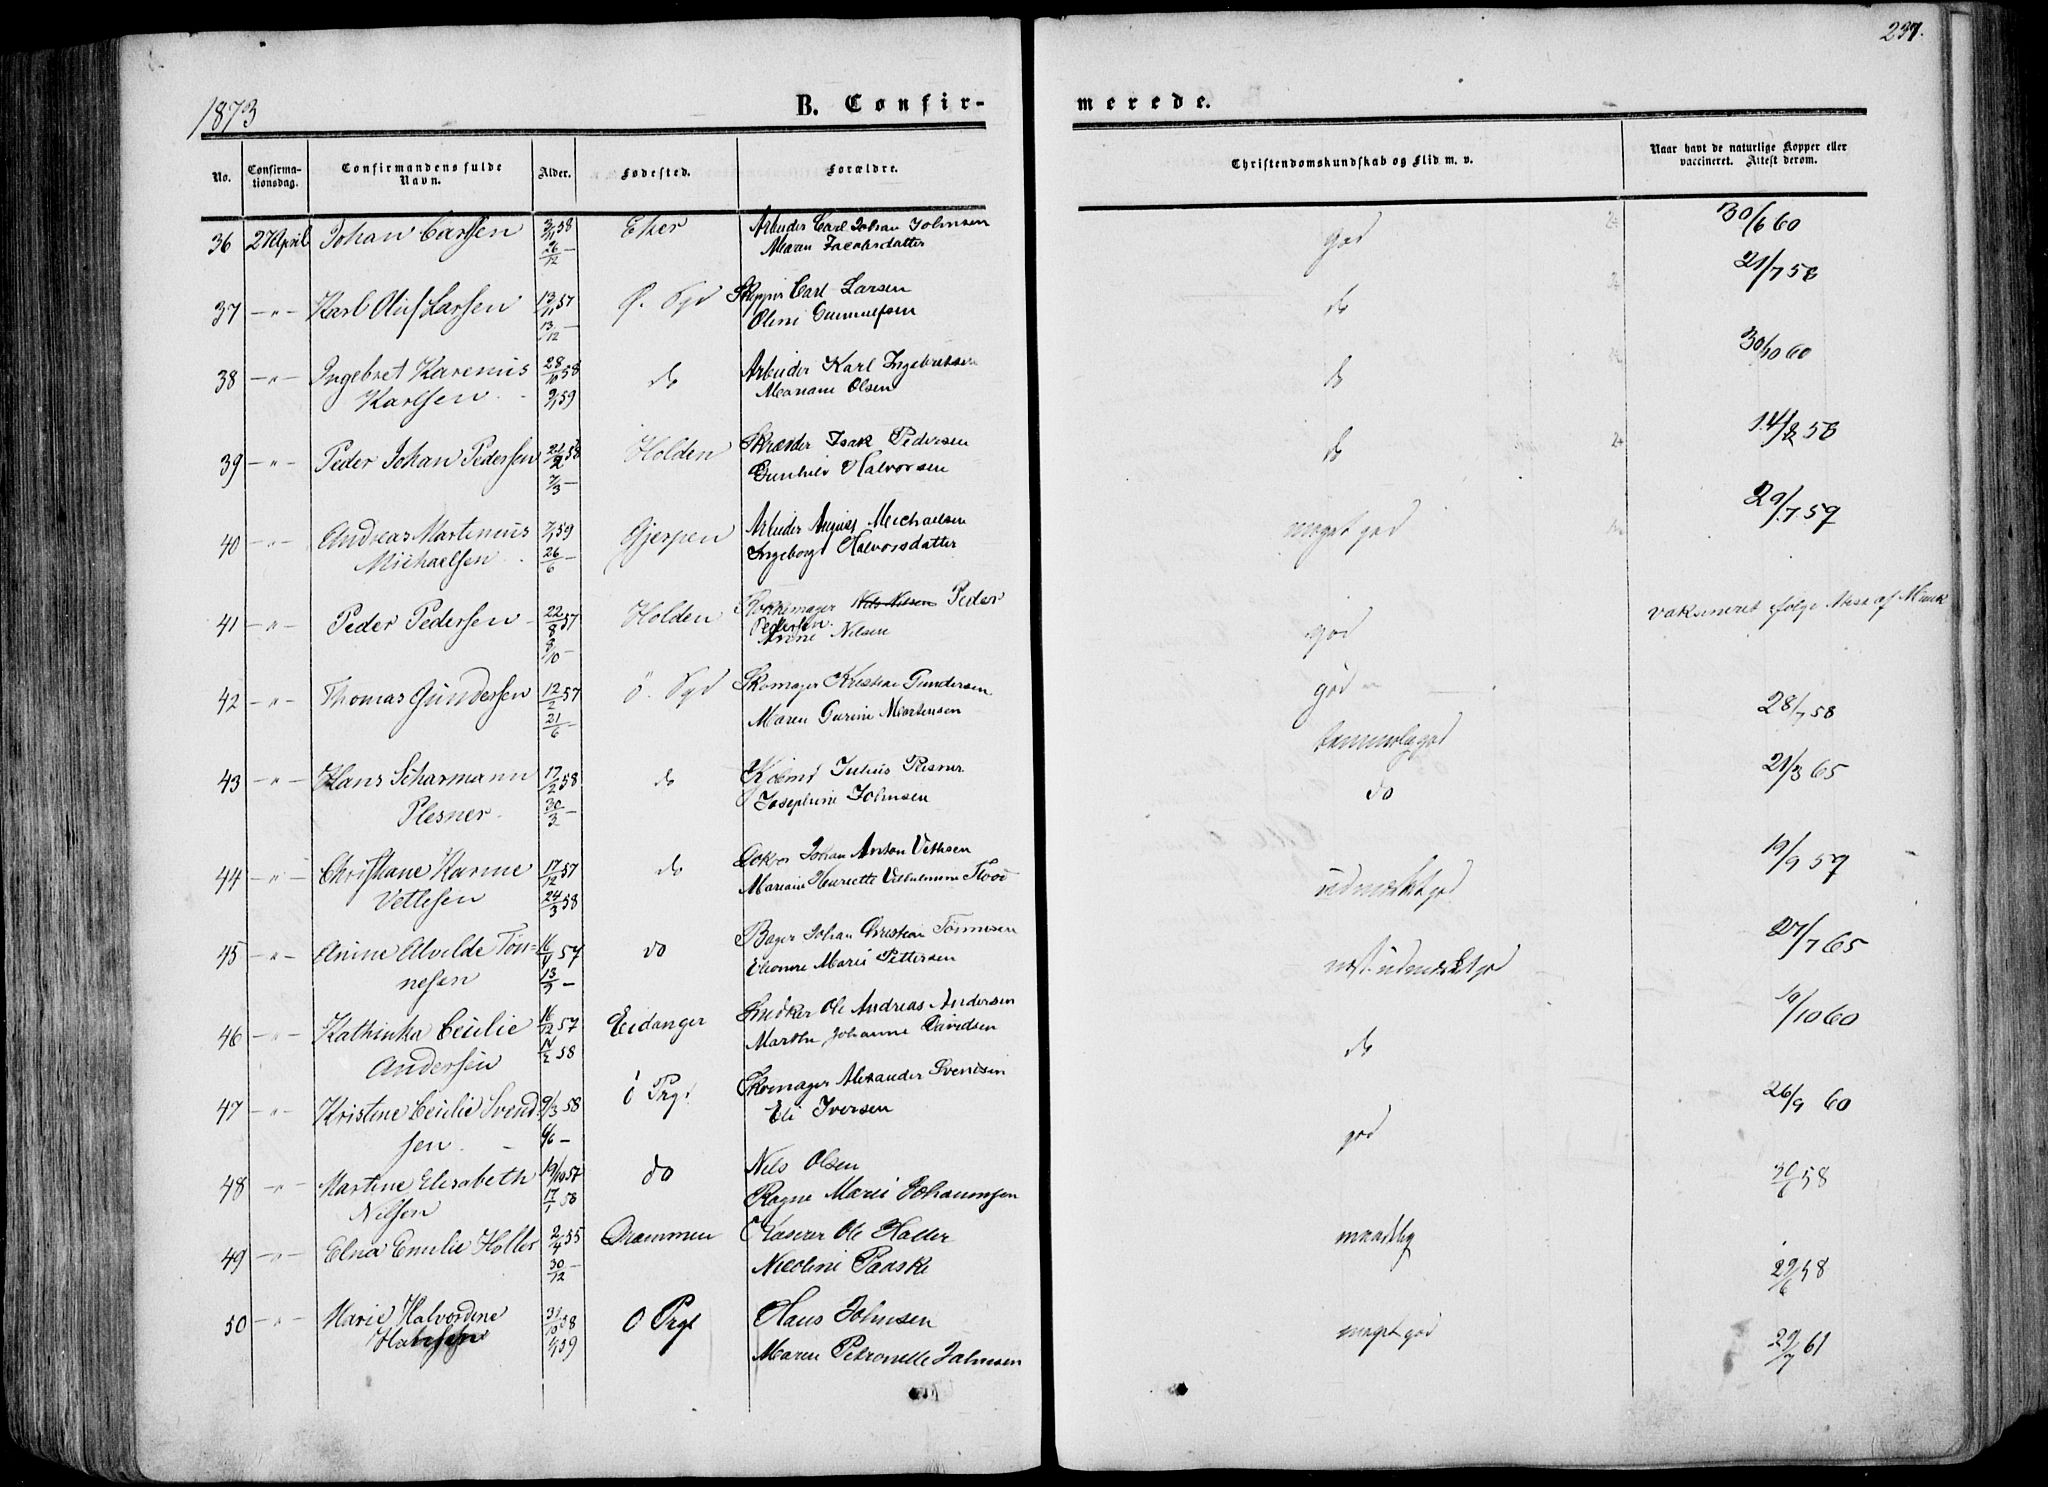 1873
B. Confir-
merede.
237.
No.
Confirma-
tionsdag.
Confirmandens fulde
Navn.
Alder.
Fødested.
Forældre.
Christendomskundskab og Flid m. v.
Naar havt de naturlige Kopper eller
vaccineret. Attest derom.
36 27 April Johan Carlsen 58 Arbeider Carl Johan Johnsen god 30/6 60
26/12 Maren Jacobsdatter
37 -"- Karl Oluf Larsen 13/11 57 Skipper Carl Larsen do 21/7 58
13/12 — Oline Gunnulfsen
38 -"- Ingebret Karenius 28/10 58 do Arbeider Karl Ingebretsen do 30/10 60
Karlsen 59 Mariane Olsen
39 -"- Peder Johan Pedersen 21/2 58 Holden Skræder Isak Pedersen do 14/8 58
7/3 — Gunhild Halvorsen
40 -"- Andreas Martinius 59 Gjerpen Arbeider Michaelsen meget god 29/7 59
Michaelsen 26/6 — Ingeborg Halvorsdatter
41 -"- Peder Pedersen 22/8 57 Holden Nils Nilsen Peder god vaksineret ifølge Attest af Munk
8/10 — Pedersen
Nilsen
42 -"- Thomas Gundersen 12/2 57 Skomager Kristian Gundersen god 28/7 58
21/6 — Maren Gurine Mortensen
43 -"- Hans Scharmann 17/2 58 do Kjøbmd Julius Plesner temmelig god 21/3 65
Plesner 30/3 — Josephine Johnsen do
44 -"- Christiane Karine 17/12 57 do Johan Anton Vetlesen udmærket god 19/9 57
Vetlesen 24/3 58 Mariane Henriette Vilhelmine Flood
45 -"- Anine Alvilde Tøn- 57 do Bager Johan Christian Tønnesen næst udmærket god 27/7 65
nesen 13/3 — Eleonore Marie Pettersen
46 -"- Kathinka Cecilie 16/12 57 Eidanger Snedker Ole Andreas Andersen do 19/10 60
Andersen 14/2 58 Marthe Johanne Davidsen
47 -"- Kristine Cecilie Svend- 9/3 58 Ö Prgl Skomager Alexander Svendsen god 26/9 60
sen 6/6 — Eli Iversen
48 -"- Martine Elisabeth 19/10 57 do Nils Olsen 58
Nilsen 17/1 58 Ragne Marie Johannesen
49 -"- Elna Emilie Holler 2/4 55 Drammen Kaserer Ole Haller maadelig 29/6 58
30/12 — Nicoline Paaske
50 -"- Marie Halvordine 31/10 58 Ö Prgl Hans Johnsen meget god 29/7 61
Hansen 59 Maren Petronelle Johnsen